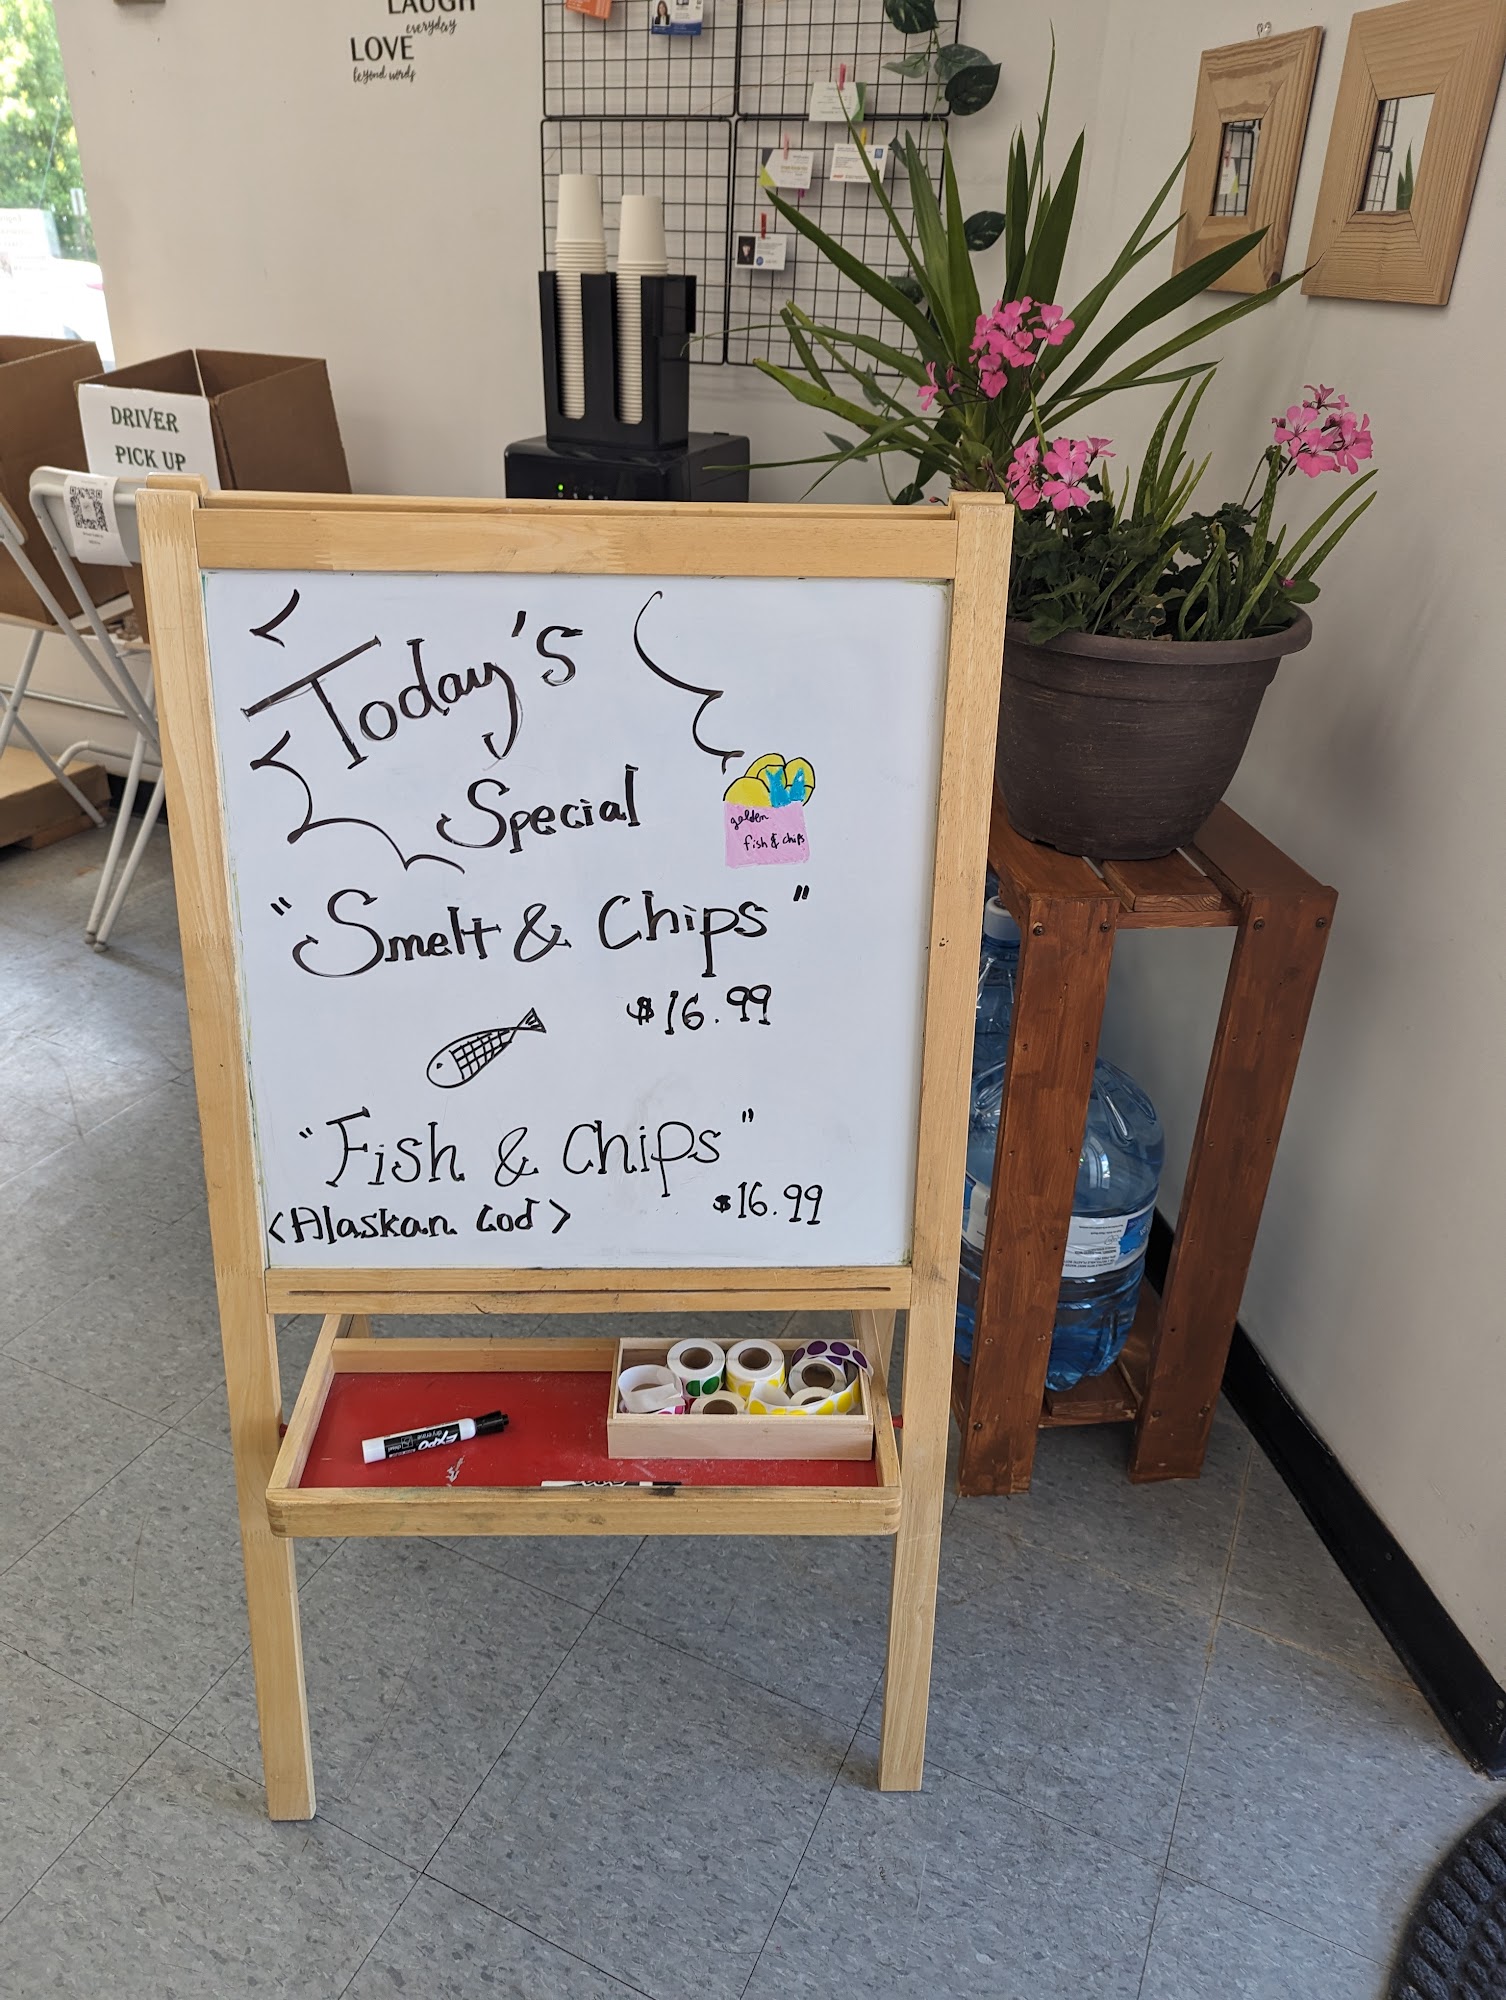 LAUGH
everyday
LOVE
beyond words
DRIVER
PICK UP
Today's
Special
golden
fish & chips
"Smelt & Chips"
$16.99
"Fish & Chips"
<Alaskan Cod>
$16.99
EXPO
dry erase